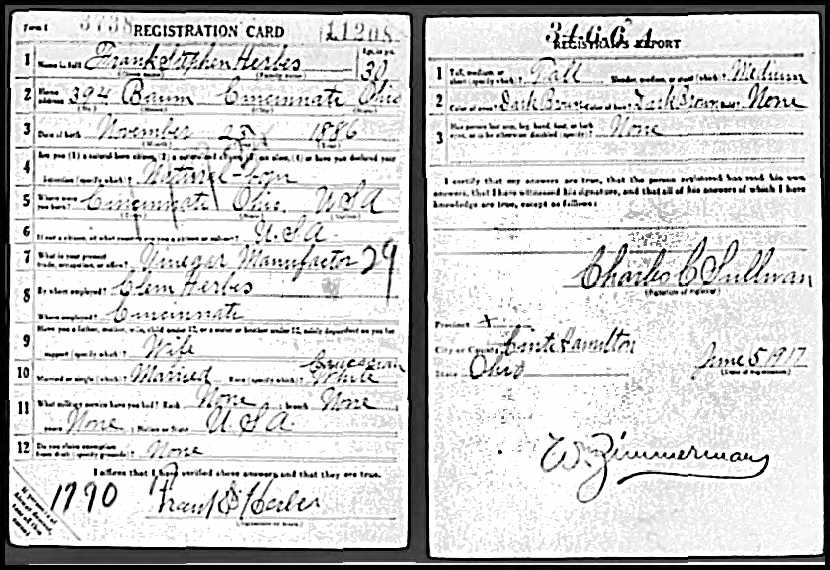 Form 1 3738 REGISTRATION CARD 11208
1 Name in full Frank Stephen Herbes Age, in yrs. 30
(Given name) (Family name)
2 Home address 394 Baum Cincinnati Ohio
(No.) (Street) (City) (State)
3 Date of birth November 1886
(Month) (Day) (Year)
4 Are you (1) a natural-born citizen, (2) a naturalized citizen, (3) an alien, (4) or have you declared your
intention (specify which)? Natural-born
5 Where were you born? Cincinnati Ohio. USA
(Town) (State) (Nation)
6 If not a citizen, of what country are you a citizen or subject? U.S.A.
7 What is your present trade, occupation, or office? Vinegar Manufactor 29
8 By whom employed? Clem Herbes
Where employed? Cincinnati
9 Have you a father, mother, wife, child under 12, or a sister or brother under 12, solely dependent on you for
support (specify which)? Wife
10 Married or single (which)? Married Race (specify which)? Caucasian White
11 What military service have you had? Rank None ; branch None
years None ; Nation or State U.S.A.
12 Do you claim exemption from draft (specify grounds)? None
I affirm that I have verified above answers and that they are true.
1790 Frank S Herbes
(Signature or mark)
REGISTRAR'S REPORT
1 Tall, medium, or short (specify which)? Tall Slender, medium, or stout (which)? Medium
2 Color of eyes? Dark Brown Color of hair? Dark Brown Bald? None
3 Has person lost arm, leg, hand, foot, or both eyes, or is he otherwise disabled (specify)? None
I certify that my answers are true, that the person registered has read his own
answers, that I have witnessed his signature, and that all of his answers of which I have
knowledge are true, except as follows:
Charles C Sullivan
(Signature of registrar)
Precinct X
City or County Cinti Hamilton
State Ohio June 5, 1917
(Date of registration)
W. Zimmerman